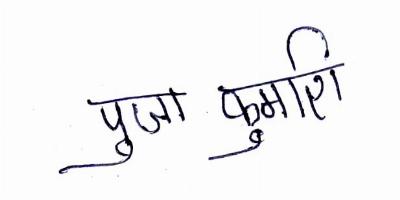 पुजा कुमारि